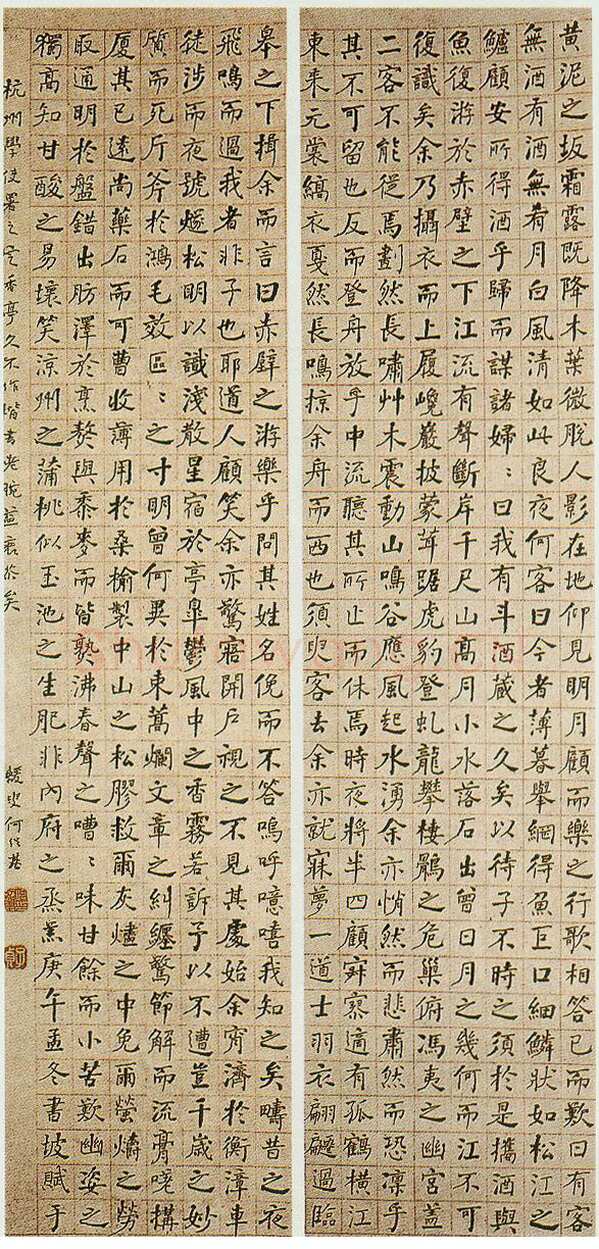 黄泥之坂霜露既降木葉微脫人影在地仰見明月顧而樂之行歌相答已而歎曰有客
無酒有酒無肴月白風清如此良夜何客曰今者薄暮舉網得魚巨口細鱗狀如松江之
鱸顧安所得酒乎歸而謀諸婦：曰我有斗酒藏之久矣以待子不時之須於是攜酒與
魚復游於赤壁之下江流有聲斷岸千尺山高月小水落石出曾日月之幾何而江不可
復識矣余乃攝衣而上履巉巖披蒙茸踞虎豹登虬龍攀棲鶻之危巢俯馮夷之幽宮蓋
二客不能從焉劃然長嘯艸木震動山鳴谷應風起水湧余亦悄然而悲肅然而恐凜乎
其不可留也反而登舟放乎中流聽其所止而休焉時夜將半四顧寂寥適有孤鶴橫江
東来元裳縞衣戛然長鳴掠余舟而西也須臾客去余亦就寐夢一道士羽衣翩躚過臨
皋之下揖余而言曰赤壁之游樂乎問其姓名俛而不答嗚呼噫嘻我知之矣疇昔之夜
飛鳴而過我者非子也耶道人顧笑余亦驚寤開戶視之不見其處始余宵濟於衡漳車
徒涉而夜號燧松明以識淺散星宿於亭皐鬱風中之香霧若訴予以不遭豈千歲之妙
質而死斤斧於鴻毛效區：之寸明曾何異於束蒿爛文章之糾纏驚節解而流膏嗟構
廈其已遠尚藥石而可曹收薄用於桑榆製中山之松膠救爾灰燼之中免爾螢爝之勞
取通明於盤錯出肪澤於烹熬與黍麥而皆熟沸春聲之嘈：味甘餘而小苦歎幽姿之
獨高知甘酸之易壞笑涼州之蒲桃似玉池之生肥非內府之烝羔庚午孟冬書坡賦于
杭州學使署之定香亭久不作楷書老腕益矣
蝯叟何紹基